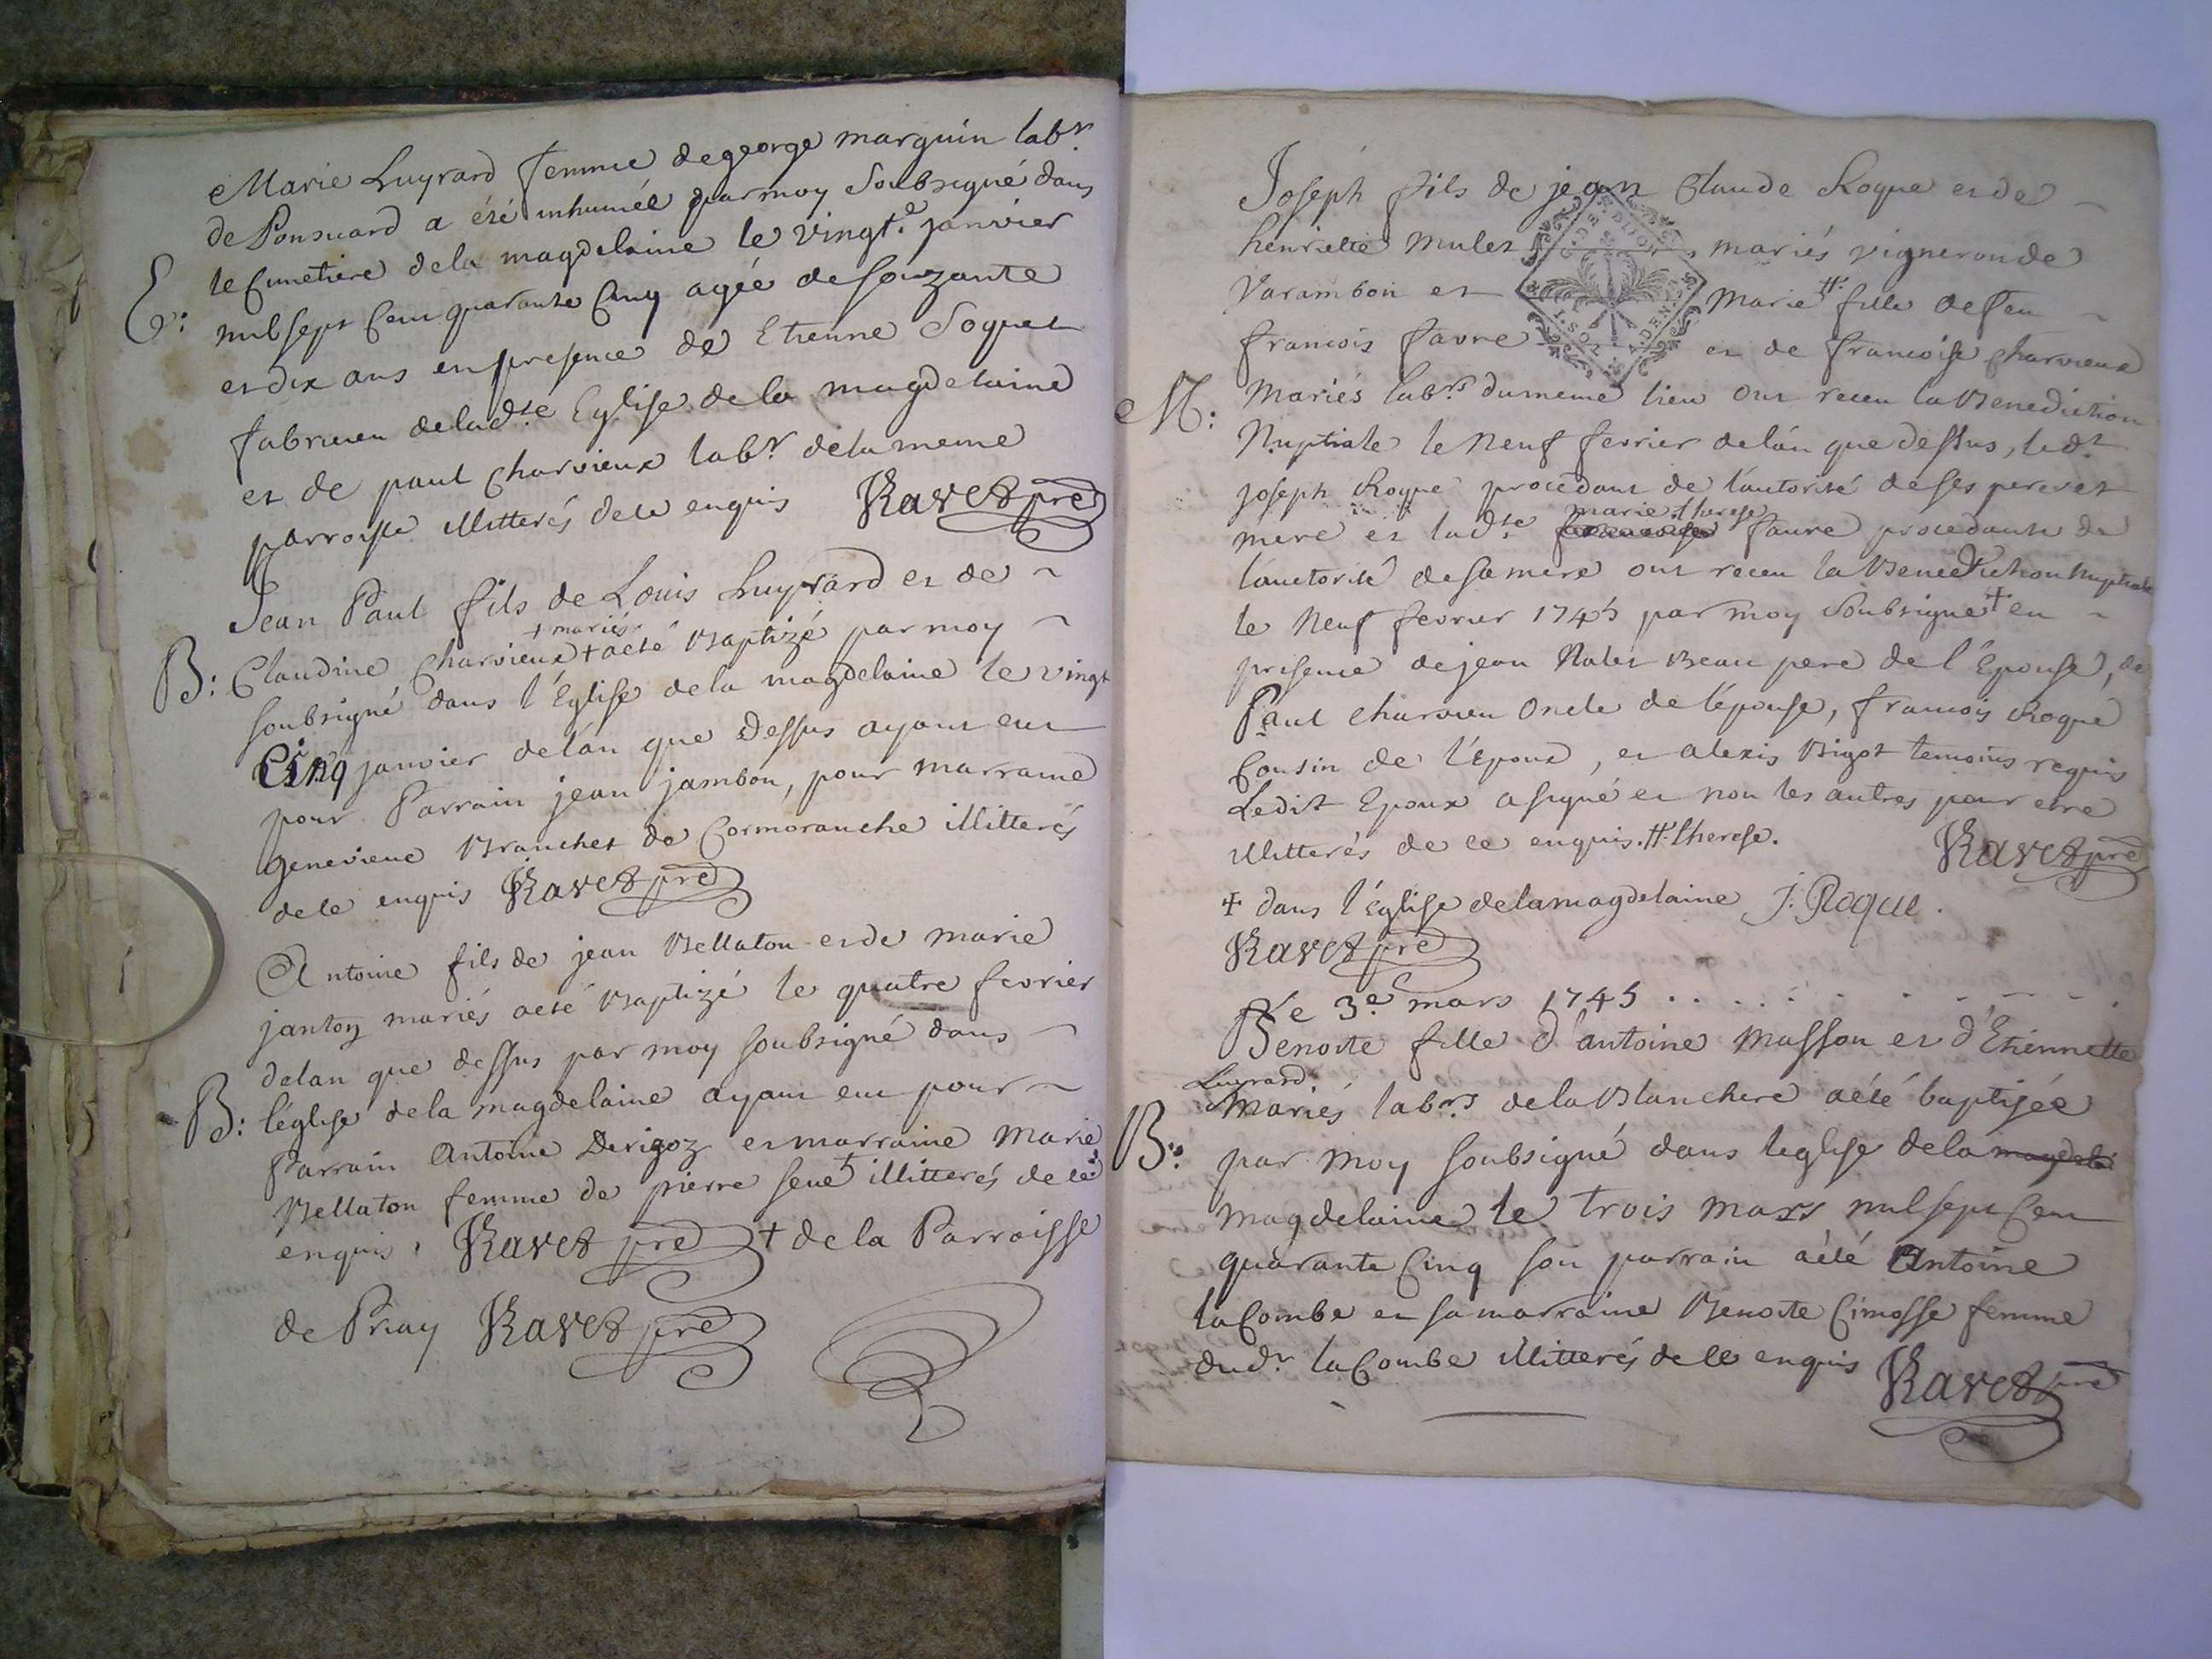 Marie Luyrard femme de george marguin labr.
de Ponsuard a été inhumée par moy Soubsigné dans
E: le Cimetiere de la magdelaine le vingt.e janvier
mil sept Cent quarante Cinq agée de soizante
et dix ans en presence de Etienne Soquet
fabricien de lad.te Eglise de la magdelaine
et de paul Charvieux labr. de la meme
parroisse illitterés de ce enquis Ravet pre
Jean Paul fils de Louis Luyrard et de ~
+ mariés
B: Claudine Charvieux + a eté Baptizé par moy ~
soubsigné dans l'Eglise de la magdelaine le vingt
Cinq janvier de l'an que Dessus ayant eut
pour Parrain jean jambon, pour marraine
genevieve Branchet de Cormoranche illitterés
de ce enquis Ravet pre
Antoine fils de jean Bellaton et de marie
janton mariés a eté Baptizé le quatre fevrier
de lan que dessus par moy soubsigné dans ~
B: l'église de la magdelaine ayant eu pour ~
Parrain Antoine Derigoz et marraine Marie
Bellaton femme de pierre sene + illitterés de ce
enquis. Ravet pre + de la Parroisse
de Priay Ravet pre
Joseph fils de jean Claude Roque et de ~
henriette mulet mariés vigneron de
Varambon et Marie # fille de feu ~
francois favre et de francoise Charvieux
M: Mariés labrs. du meme lieu ont receu la Benediction
Nuptiale le Neuf fevrier de l'an que dessus, led.t
joseph Roque procedant de l'autorité de ses pere et
marie therese
mere et lad.te francoise faure procedante de
l'auctorité de sa mere ont receu la Benediction Nuptiale
le Neuf fevrier 1745 par moy Soubsigné + en ~
presence de jean Mulet Beau pere de l'Epouse, de
Paul Charvieu Oncle de l'épouse, francois Roque
Cousin de l'Epoux, et alexis Bigot temoins requis
Ledit Epoux a signé et non les autres pour etre
illitterés de ce enquis. # therese. Ravet pre
+ dans l'Eglise de la magdelaine J. Roque.
Ravet pre
Le 3.e mars 1745
Benoite fille d'antoine Masson et d'Etiennette
Luyrard
Mariés labrs. de la Blanchere a été baptisée
B: par moy soubsigné dans leglise de la magdela
magdelaine le trois mars mil sept Cent
quarante Cinq son parrain a été Antoine
la Combe et sa marraine Benoite Cimosse femme
dud.t la Combe illitterés de ce enquis Ravet pre